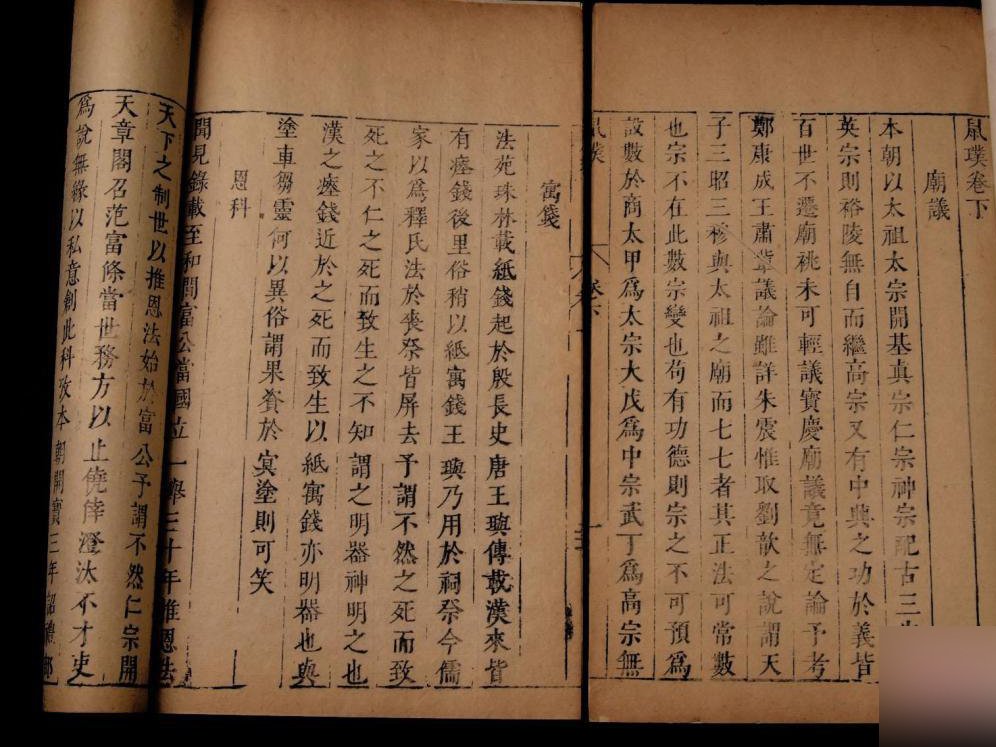 鼠璞卷下
廟議
本朝以太祖太宗開基真宗仁宗神宗配古三
英宗則裕陵無自而繼高宗又有中興之功於義皆
百世不遷廟祧未可輕議寶慶廟議竟無定論予考
鄭康成王肅韋議論雖詳朱震惟取劉歆之說謂天
子三昭三穆與太祖之廟而七七者其正法可常數
也宗不在此數宗變也苟有功德則宗之不可預為
設數於商太甲為太宗大戊為中宗武丁為高宗無
鼠璞
卷下
一
寓錢
法苑珠林載紙錢起於殷長史唐王璵傳載漢來皆
有瘞錢後里俗稍以紙寓錢王璵乃用於祠祭今儒
家以為釋氏法於喪祭皆屏去予謂不然之死而致
死之不仁之死而致生之不知謂之明器神明之也
漢之瘞錢近於之死而致生以紙寓錢亦明器也與
塗車芻靈何以異俗謂果資於冥塗則可笑
恩科
聞見錄載至和間富公當國立一舉三十年推恩法
天下之制世以推恩法始於富公予謂不然仁宗開
天章閣召范富條當世務方以止僥倖澄汰不才吏
為說無緣以私意創此科攷本朝開寶三年詔禮部